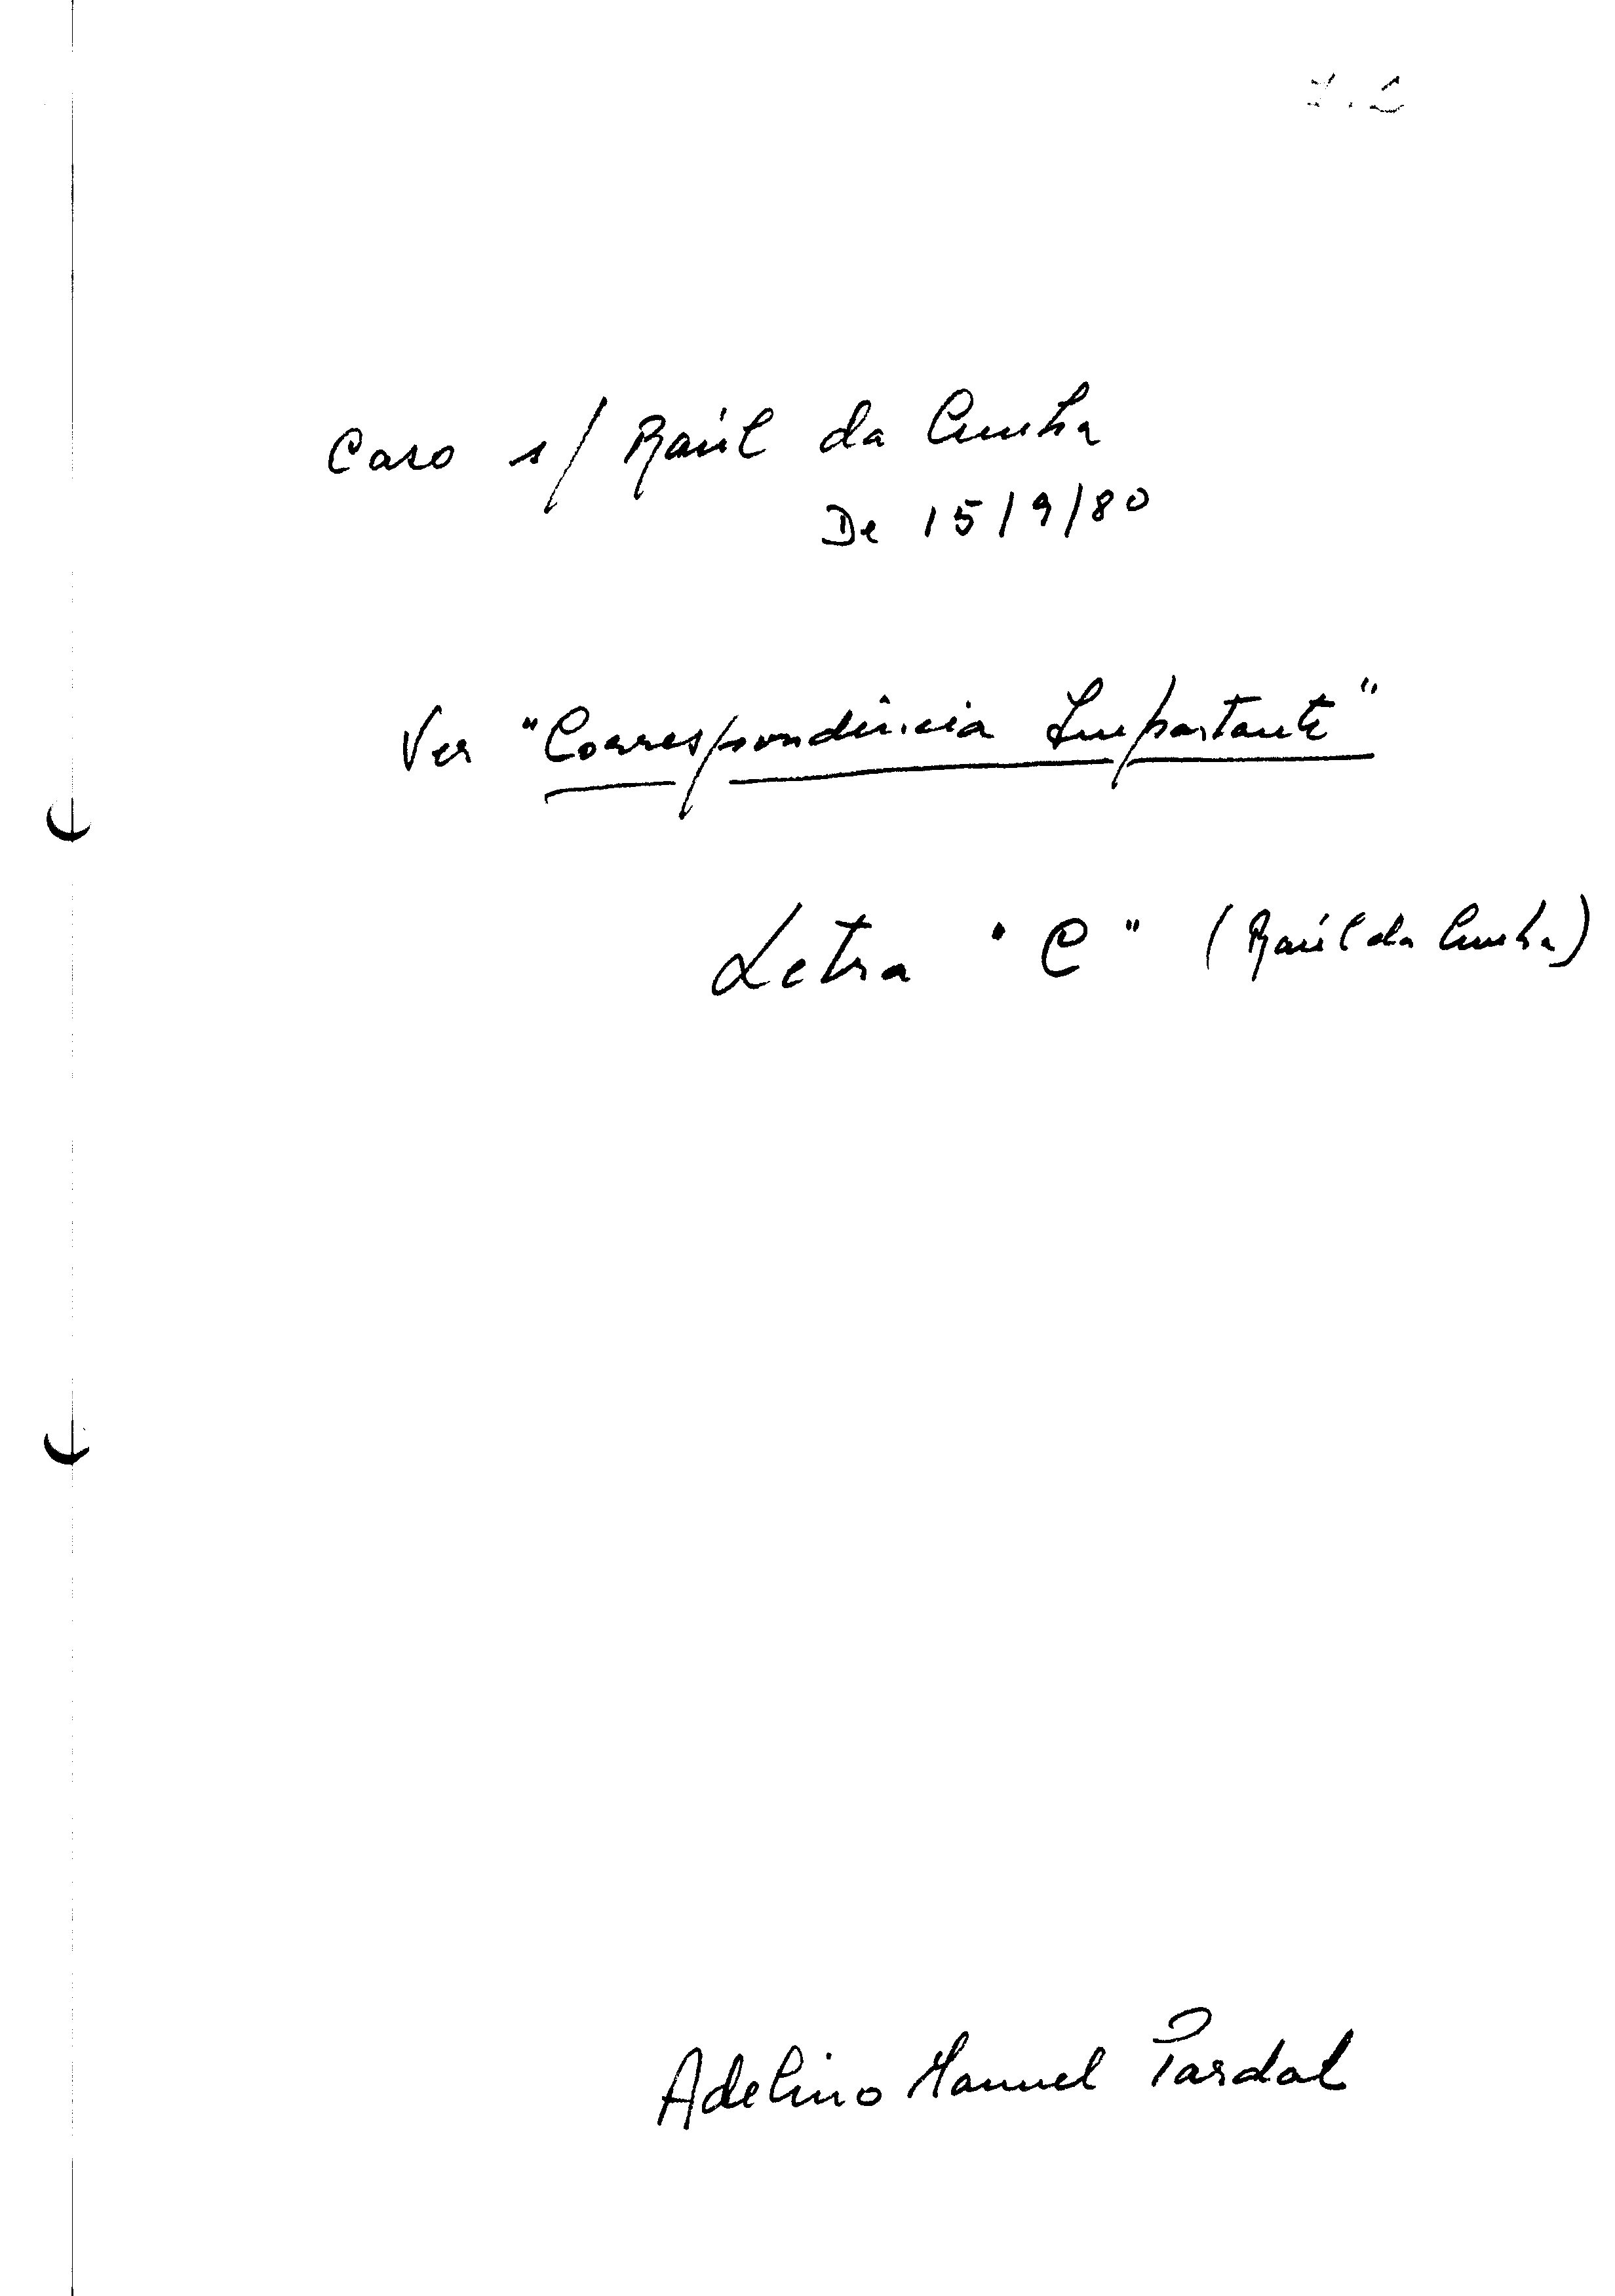 Caso s/ Raúl da Cunha
De 15/9/80
Ver "Correspondência Importante"
Letra "C" (Raúl da Cunha)
Adelino Manuel Pardal